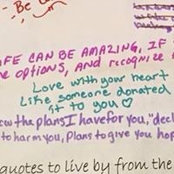 Be
FE CAN BE AMAZING, IF
e OPTIONS, AND recognize
Love with your heart
Like someone donated
it to you ♡
w the plans I have for you," decl
to harm you, Plans to give you hop
quotes to live by from the